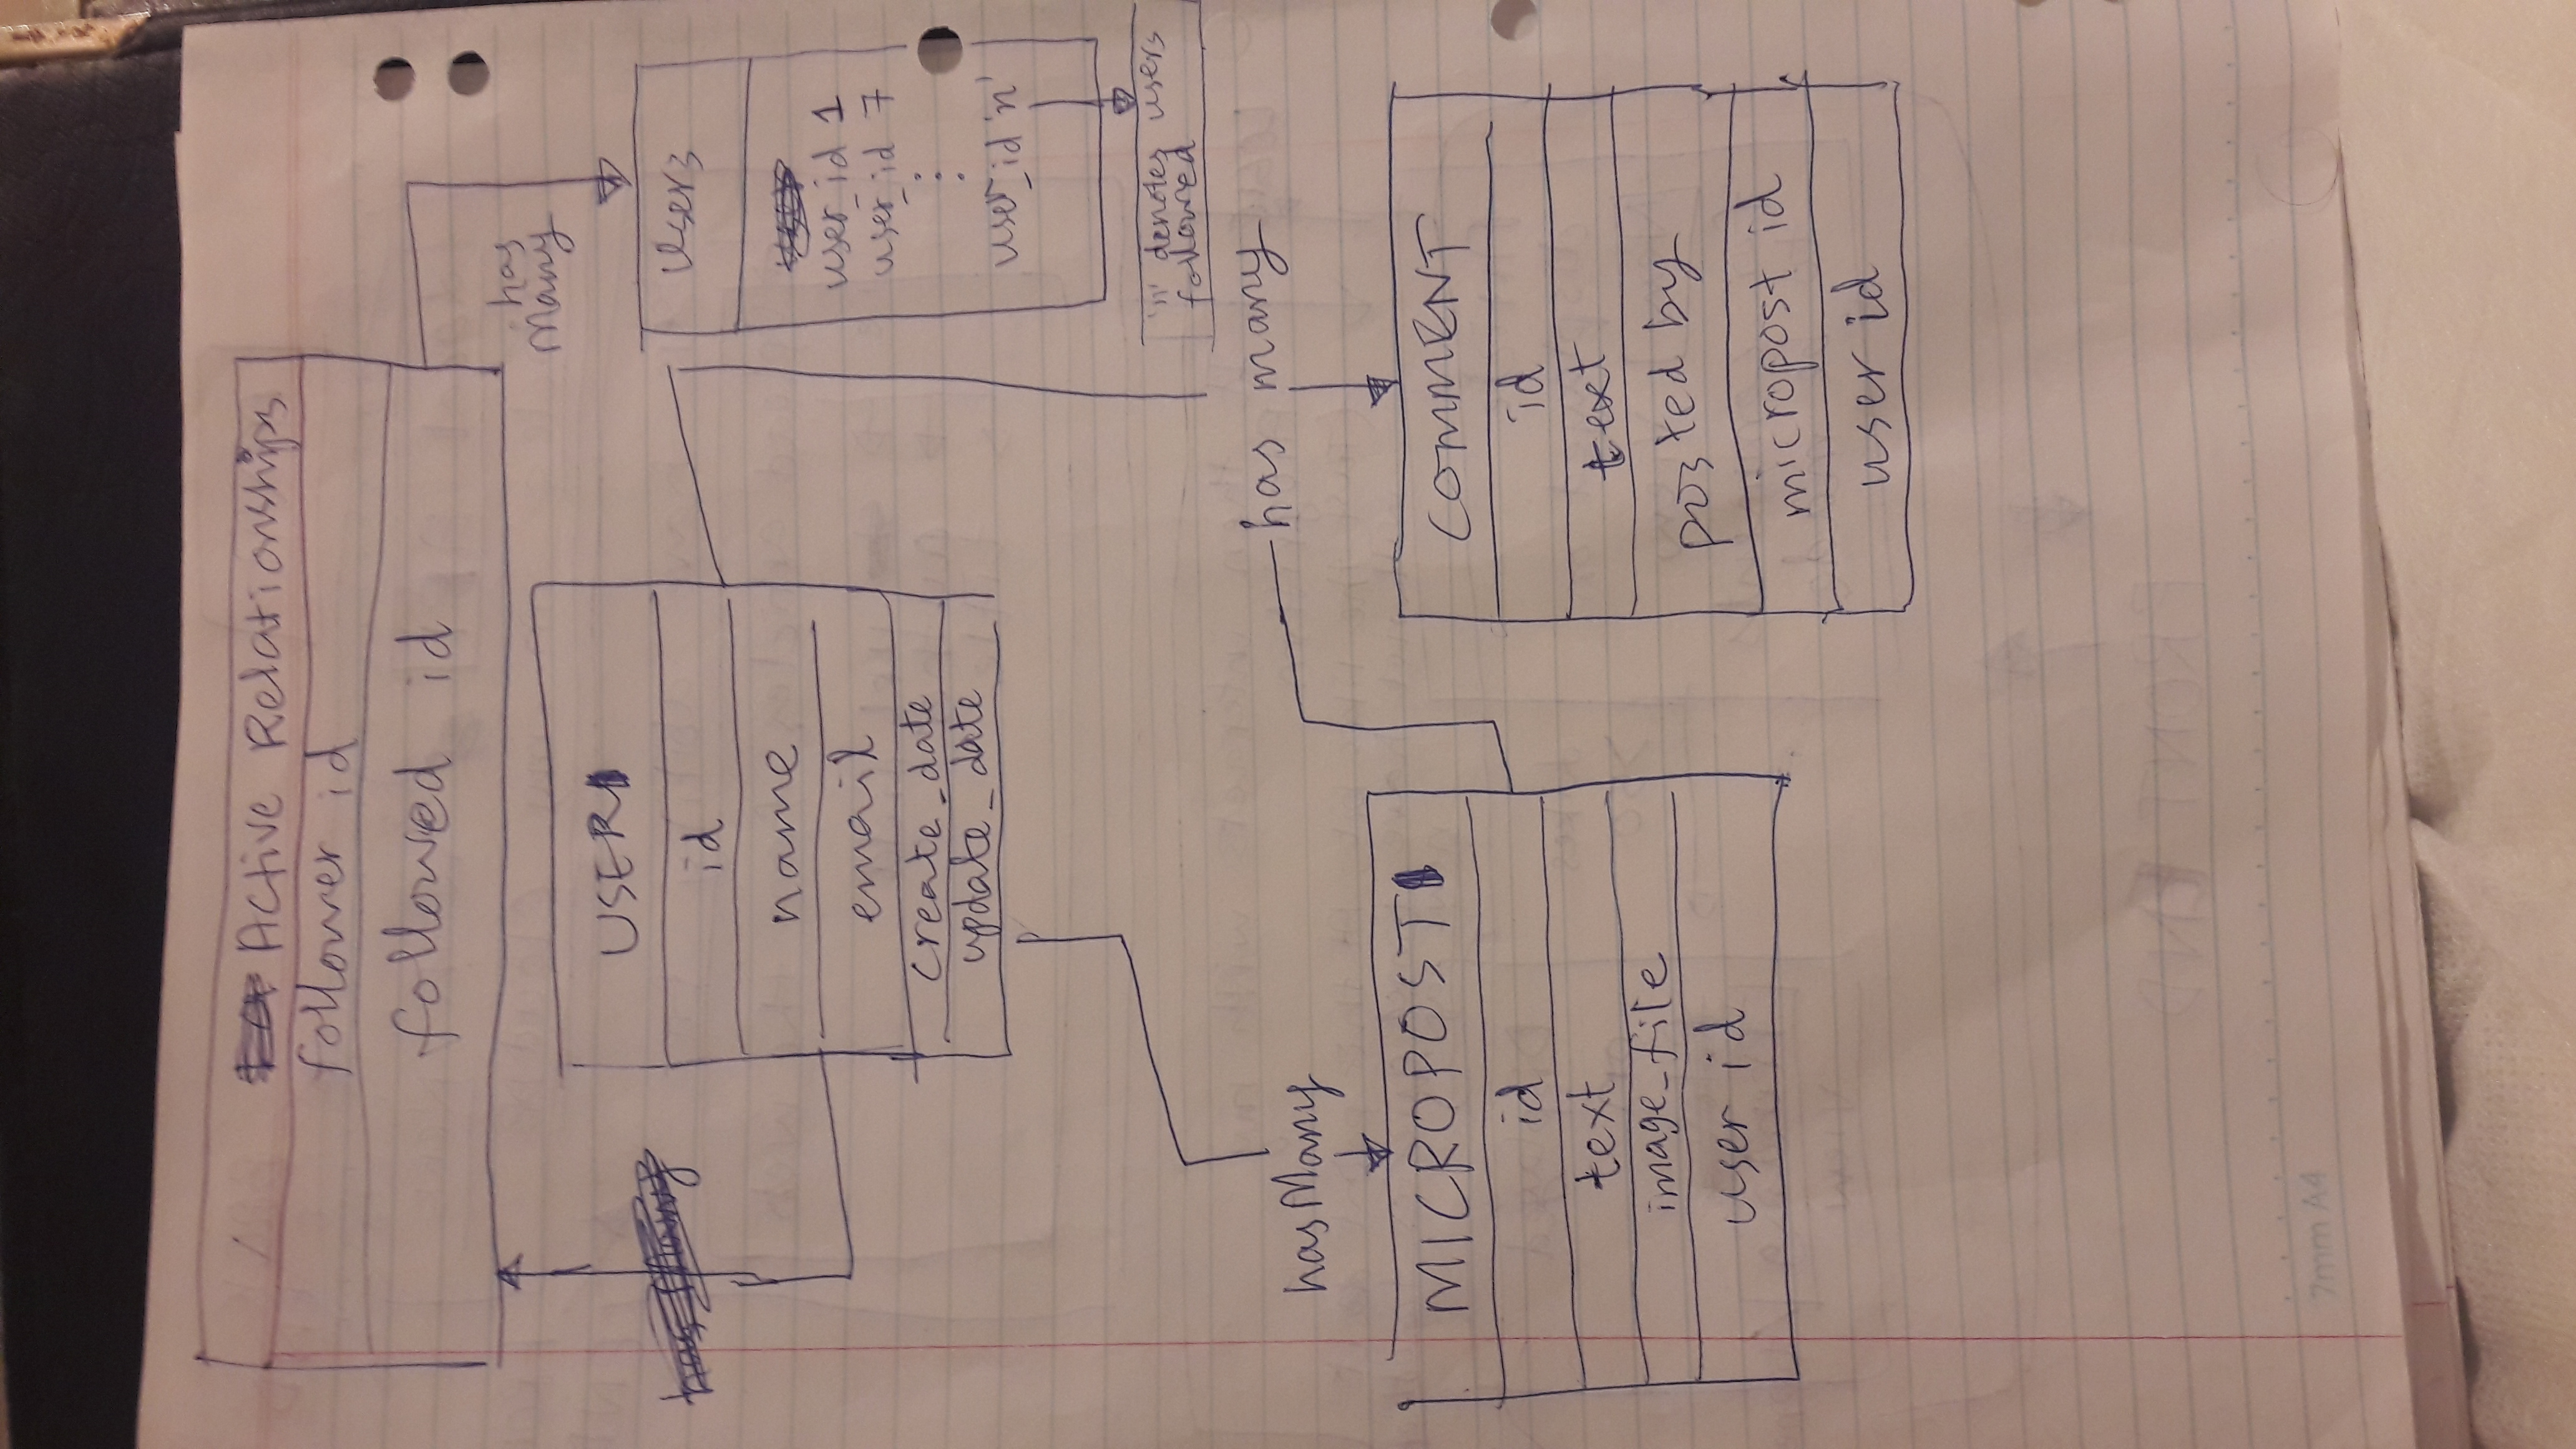 Active Relationships
follower id
followed id
has
Many
USER
id
name
email
create_date
update_date
users
user_id 1
user_id 7
user_id 'n'
'n' denotes users
followed
has Many
hasMany
has many
MICROPOST
id
text
image_file
user id
COMMENT
id
text
posted by
micropost id
user id
FRONT END
7mm A4